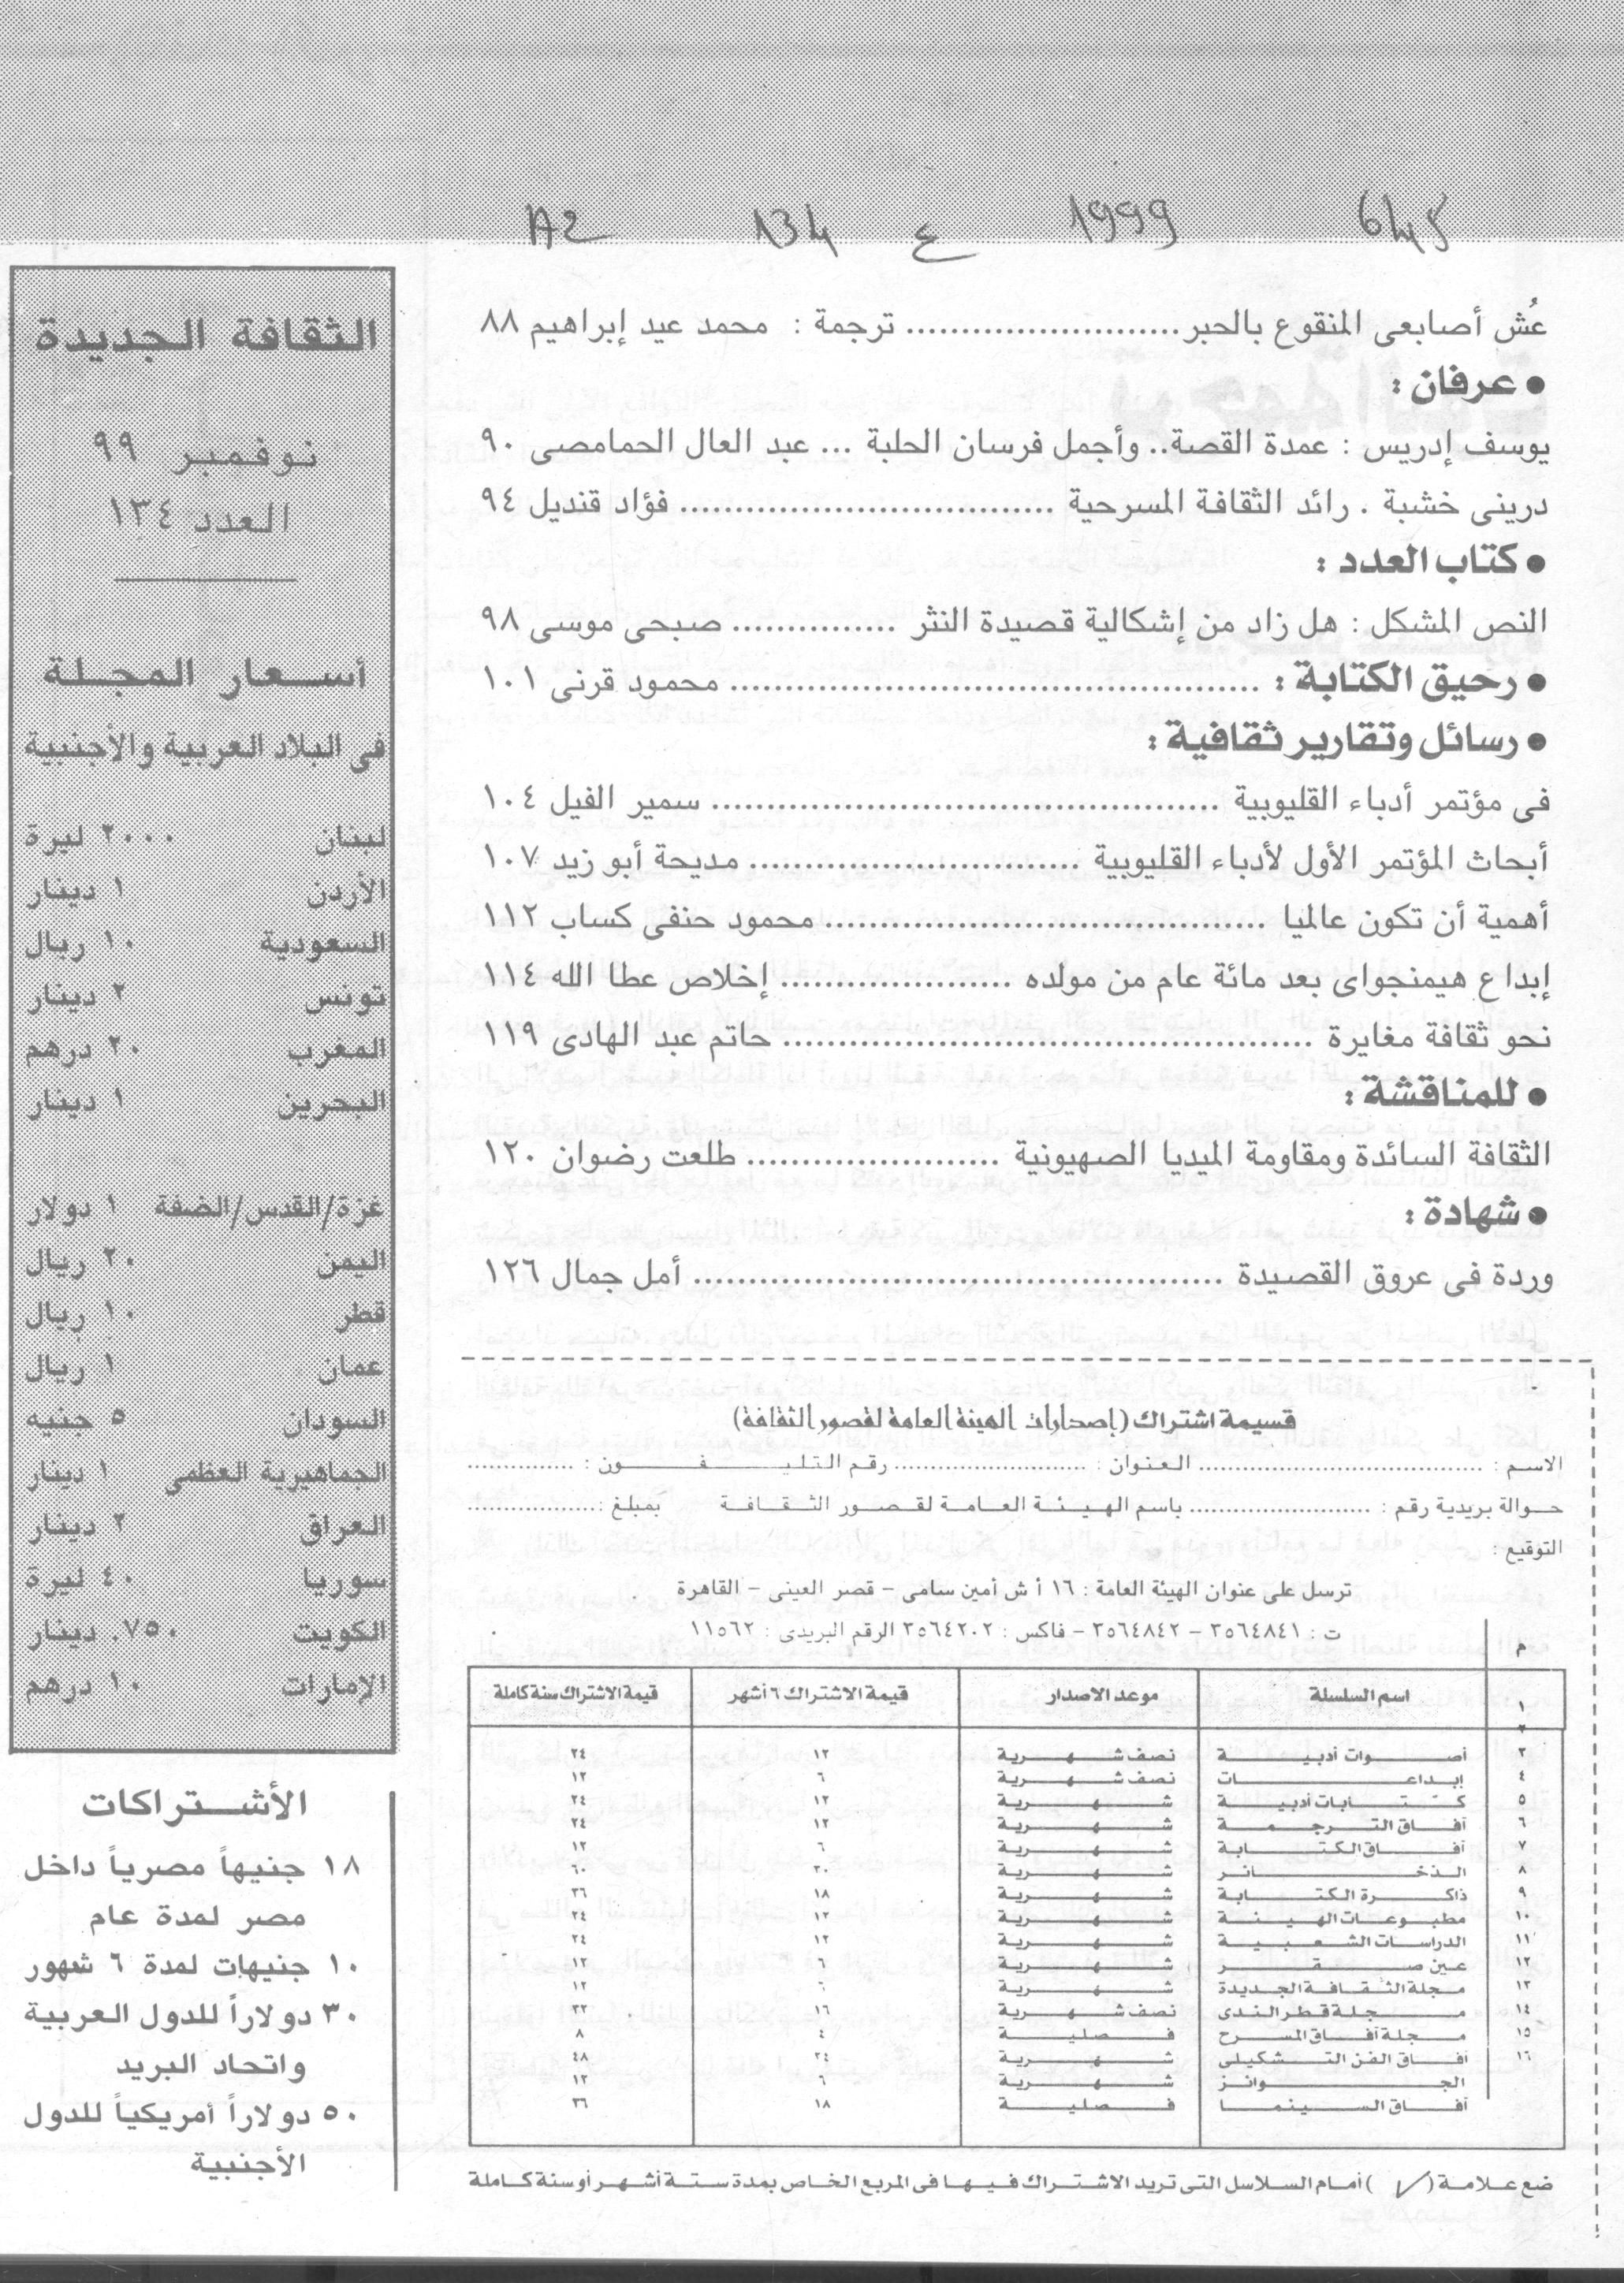 645 1999 ع 134 A2
عُش أصابعى المنقوع بالحبر ........................ ترجمة : محمد عيد إبراهيم ٨٨
● عرفان :
يوسف إدريس : عمدة القصة.. وأجمل فرسان الحلبة ... عبد العال الحمامصى ٩٠
درينى خشبة . رائد الثقافة المسرحية ................................. فؤاد قنديل ٩٤
● كتاب العدد :
النص المشكل : هل زاد من إشكالية قصيدة النثر ............... صبحى موسى ٩٨
● رحيق الكتابة : ................................................ محمود قرنى ١٠١
● رسائل وتقارير ثقافية :
فى مؤتمر أدباء القليوبية ............................................. سمير الفيل ١٠٤
أبحاث المؤتمر الأول لأدباء القليوبية .............................. مديحة أبو زيد ١٠٧
أهمية أن تكون عالميا ....................................... محمود حنفى كساب ١١٢
إبداع هيمنجواى بعد مائة عام من مولده ..................... إخلاص عطا الله ١١٤
نحو ثقافة مغايرة ............................................... حاتم عبد الهادى ١١٩
● للمناقشة :
الثقافة السائدة ومقاومة الميديا الصهيونية ....................... طلعت رضوان ١٢٠
● شهادة :
وردة فى عروق القصيدة ............................................... أمل جمال ١٢٦
قسيمة اشتراك (إصدارات الهيئة العامة لقصور الثقافة)
الاسم : ........................ العنوان : ........................ رقم التليفون : ...............
حوالة بريدية رقم : ........................ باسم الهيئة العامة لقصور الثقافة بمبلغ : ..................
التوقيع :
ترسل على عنوان الهيئة العامة : ١٦ أ ش أمين سامى - قصر العينى - القاهرة
ت : ٣٥٦٤٨٤١ - ٣٥٦٤٨٤٢ - فاكس : ٣٥٦٤٢٠٢ الرقم البريدى : ١١٥٦٢
م
١ اسم السلسلة موعد الاصدار قيمة الاشتراك ٦ أشهر قيمة الاشتراك سنة كاملة
٢
٣ أصوات أدبية نصف شهرية ١٢ ٢٤
٤ إبداعات نصف شهرية ٦ ١٢
٥ كتابات أدبية شهرية ١٢ ٢٤
٦ آفاق الترجمة شهرية ١٢ ٢٤
٧ آفاق الكتابة شهرية ٦ ١٢
٨ الذخائر شهرية ٣٠ ٦٠
٩ ذاكرة الكتابة شهرية ١٨ ٣٦
١٠ مطبوعات الهيئة شهرية ١٢ ٢٤
١١ الدراسات الشعبية شهرية ١٢ ٢٤
١٢ عين صقر شهرية ٦ ١٢
١٣ مجلة الثقافة الجديدة شهرية ٦ ١٢
١٤ مجلة قطر الندى نصف شهرية ١٦ ٣٢
١٥ مجلة آفاق المسرح فصلية ٤ ٨
١٦ آفاق الفن التشكيلى شهرية ٢٤ ٤٨
الجوائز شهرية ٦ ١٢
آفاق السينما فصلية ١٨ ٣٦
ضع علامة ( √ ) أمام السلاسل التى تريد الاشتراك فيها فى المربع الخاص بمدة ستة أشهر أو سنة كاملة
الثقافة الجديدة
نوفمبر ٩٩
العدد ١٣٤
أسعار المجلة
فى البلاد العربية والأجنبية
لبنان ٢٠٠٠ ليرة
الأردن ١ دينار
السعودية ١٠ ريال
تونس ٢ دينار
المغرب ٢٠ درهم
البحرين ١ دينار
غزة/القدس/الضفة ١ دولار
اليمن ٢٠ ريال
قطر ١٠ ريال
عمان ١ ريال
السودان ٥ جنيه
الجماهيرية العظمى ١ دينار
العراق ٢ دينار
سوريا ٤٠ ليرة
الكويت ٧٥٠. دينار
الإمارات ١٠ درهم
الأشتراكات
١٨ جنيهاً مصرياً داخل
مصر لمدة عام
١٠ جنيهات لمدة ٦ شهور
٣٠ دولاراً للدول العربية
واتحاد البريد
٥٠ دولاراً أمريكياً للدول
الأجنبية